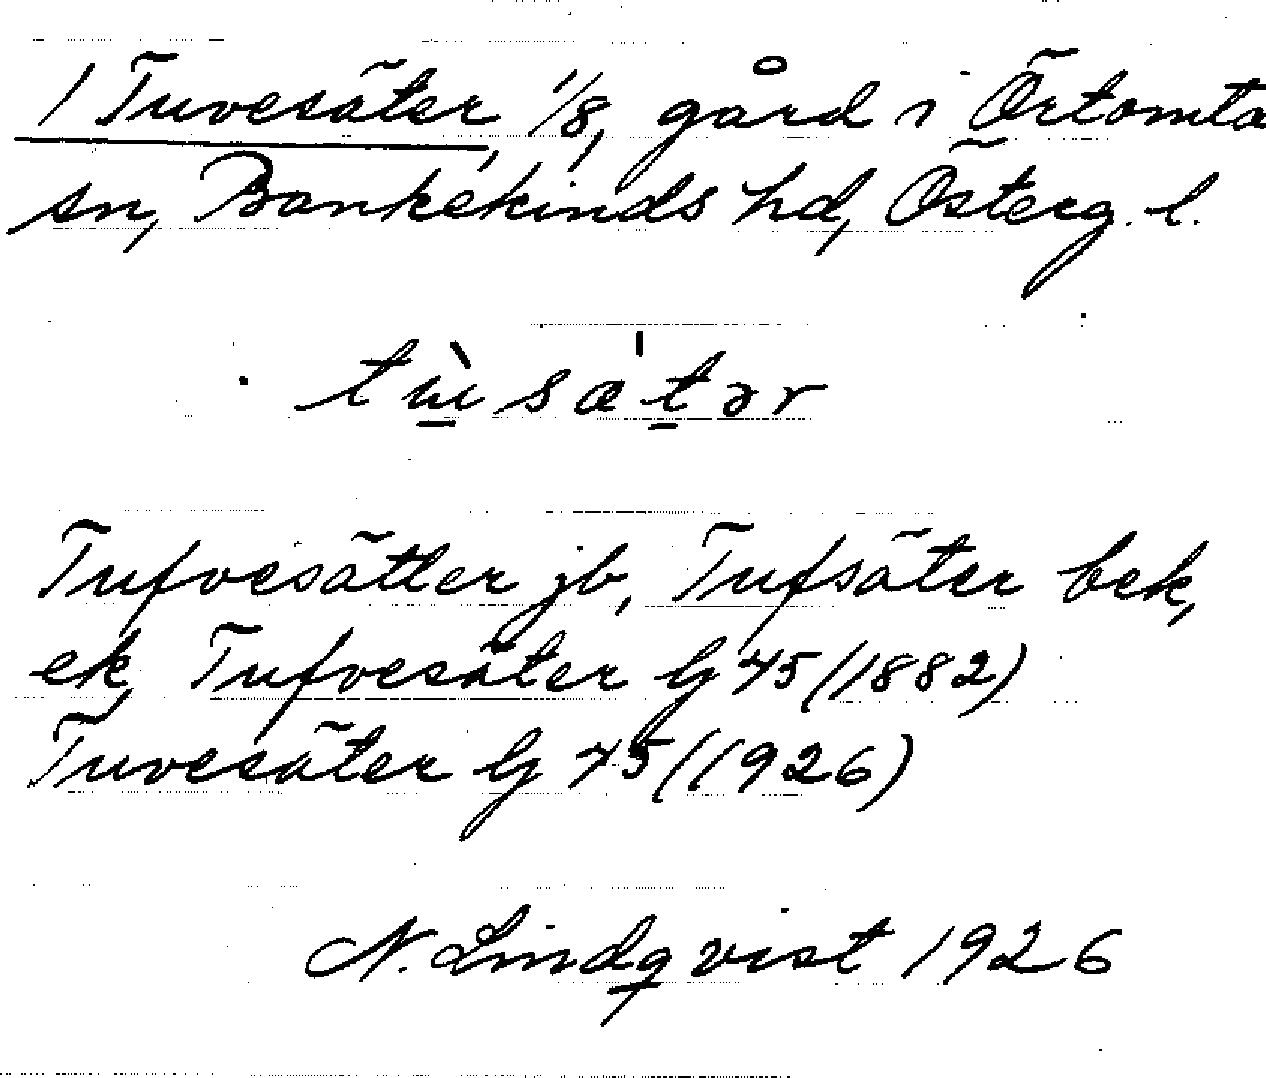 1 Tuvesäter, 1/8, gård i Örtomta
sn, Bankekinds hd, Österg. l.
tu̠̇̀sæ̍t̠ər
Tufvesätter jb, Tufsäter bek,
ek, Tufvesäter G 45 (1882)
Tuvesäter G 45 (1926)
N. Lindqvist 1926